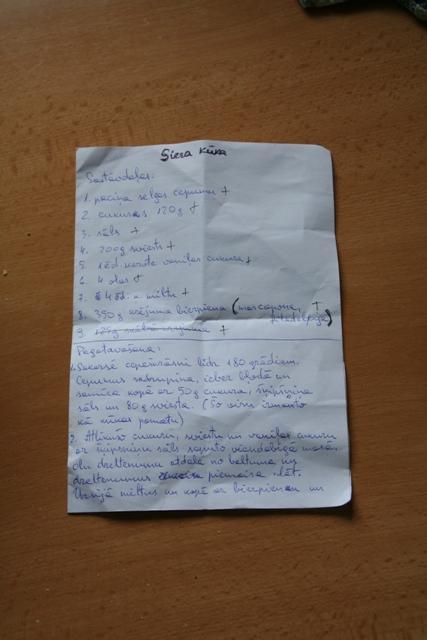 Siera kūka
Sastāvdaļas:
1. paciņa selgas cepumu +
2. cukurs 120g +
3. sāls +
4. 200g sviests +
5. 1 ēd. karote vaniļas cukura +
6. 4 olas +
7. 4 ēd. k milti +
8. 350g krējuma biezpiena (mascapone, +
filadelfija)
9. 125g saldā krējuma +
Pagatavošana:
1. Sakarsē cepeškrāsni līdz 180 grādiem.
Cepumus sadrupina, ieber bļodā un
samīca kopā ar 50g cukura, šķipsniņu
sāls un 80g sviesta. (Šo visu izmanto
kā kūkas pamatu)
2. Atlikušo cukuru, sviestu un vaniļas cukuru
ar šķipsniņu sāls sajauc viendabīgā masā,
olu dzeltenumu atdala no baltuma un
dzeltenumus pievieno klāt.
Uzsijā miltus un kopā ar biezpienu un